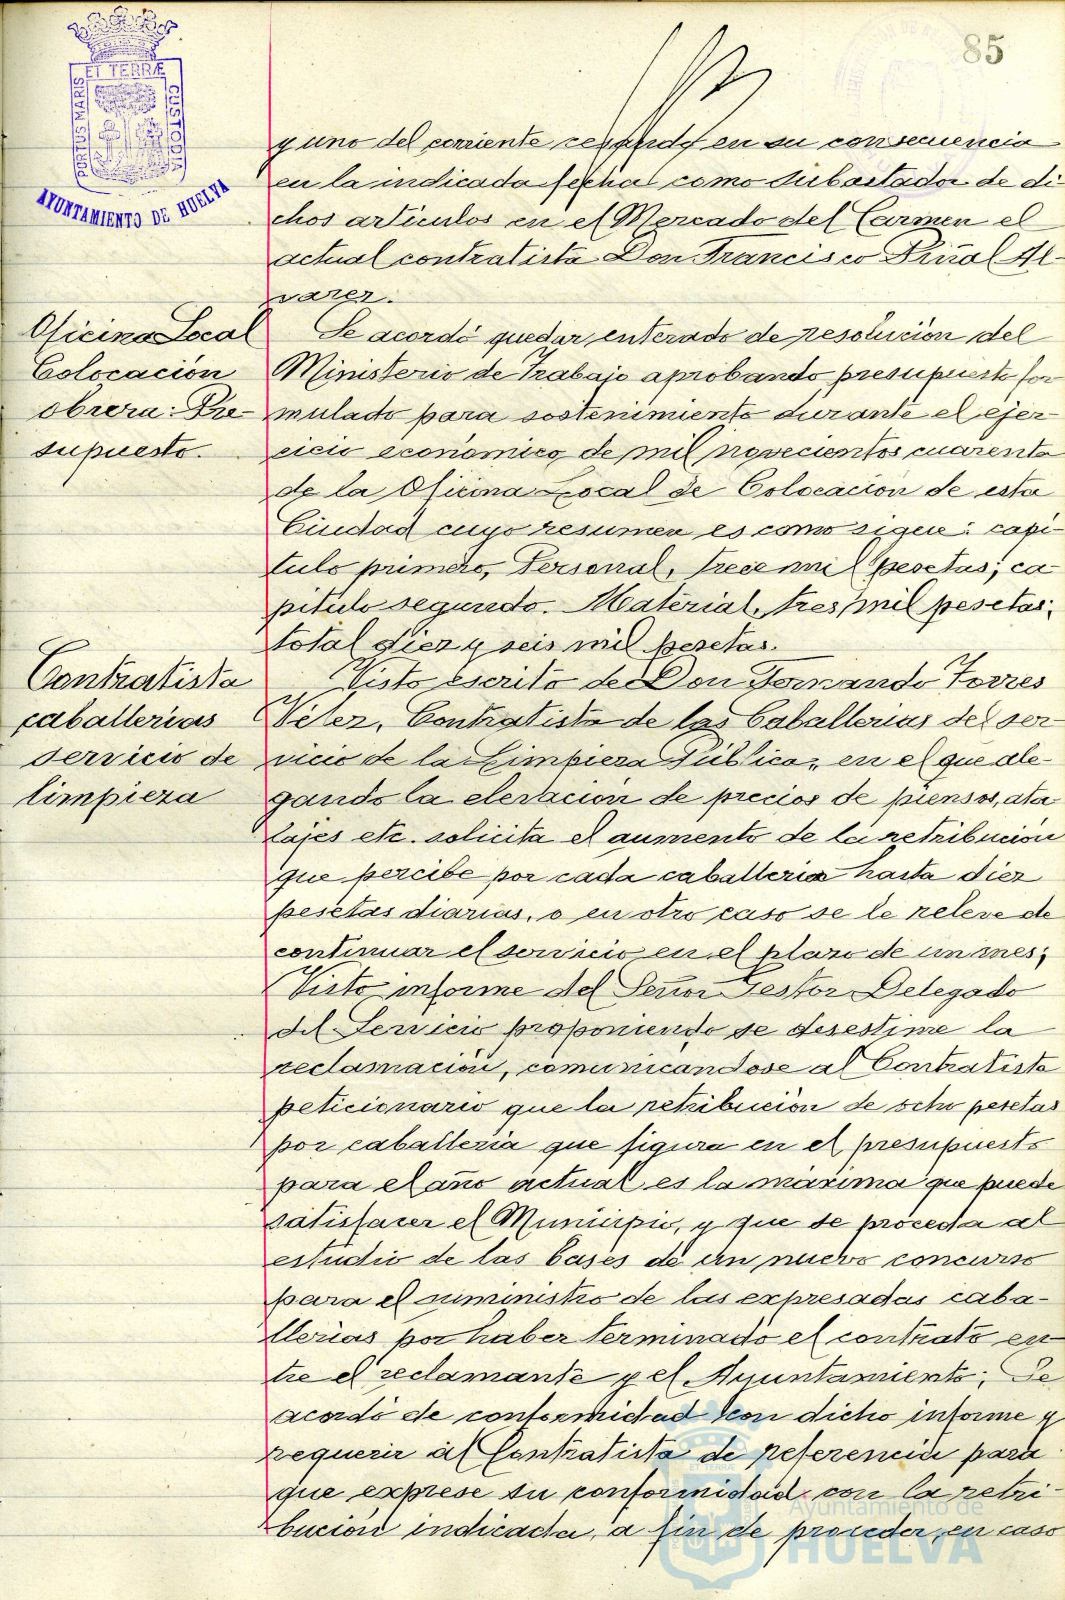 85
PORTUS MARIS
ET TERRÆ
CUSTODIA
AYUNTAMIENTO DE HUELVA
y uno del corriente cesando en su consecuencia
en la indicada fecha como subastador de di
chos articulos en el Mercado del Carmen el
actual contratista Don Francisco Piñal Al-
varez.
Oficina Local
Colocación
obrera: Pre-
supuesto.
Se acordó quedar enterado de resolución del
Ministerio de Trabajo aprobando presupuesto for
mulado para sostenimiento durante el ejer-
cicio económico de mil novecientos cuarenta
de la Oficina Local de Colocación de esta
Ciudad cuyo resumen es como sigue: capi-
tulo primero, Personal, trece mil pesetas; ca
pitulo segundo. Material, tres mil pesetas;
total diez y seis mil pesetas.
Contratista
caballerias
servicio de
limpieza
Visto escrito de Don Fernando Torres
Contratista de las Caballerias del ser-
vicio de la Limpieza Pública, en el que ale-
gando la elevación de precios de piensos, ata
lajes etc. solicita el aumento de la retribución
que percibe por cada caballeria hasta diez
pesetas diarias, o en otro caso se le releve de
continuar el servicio en el plazo de un mes;
Visto informe del Señor Gestor Delegado
del Servicio proponiendo se desestime la
reclamación, comunicandose al Contratista
peticionario que la retribución de ocho pesetas
por caballeria que figura en el presupuesto
para el año actual es la máxima que puede
satisfacer el Municipio, y que se proceda al
estudio de las bases de un nuevo concurso
para el suministro de las expresadas caba-
llerias por haber terminado el contrato en
tre el reclamante y el Ayuntamiento; Se
acordó de conformidad con dicho informe y
requerir al Contratista de referencia para
que exprese su conformidad con la retri-
bución indicada, a fin de proceder, en caso
Ayuntamiento de
HUELVA